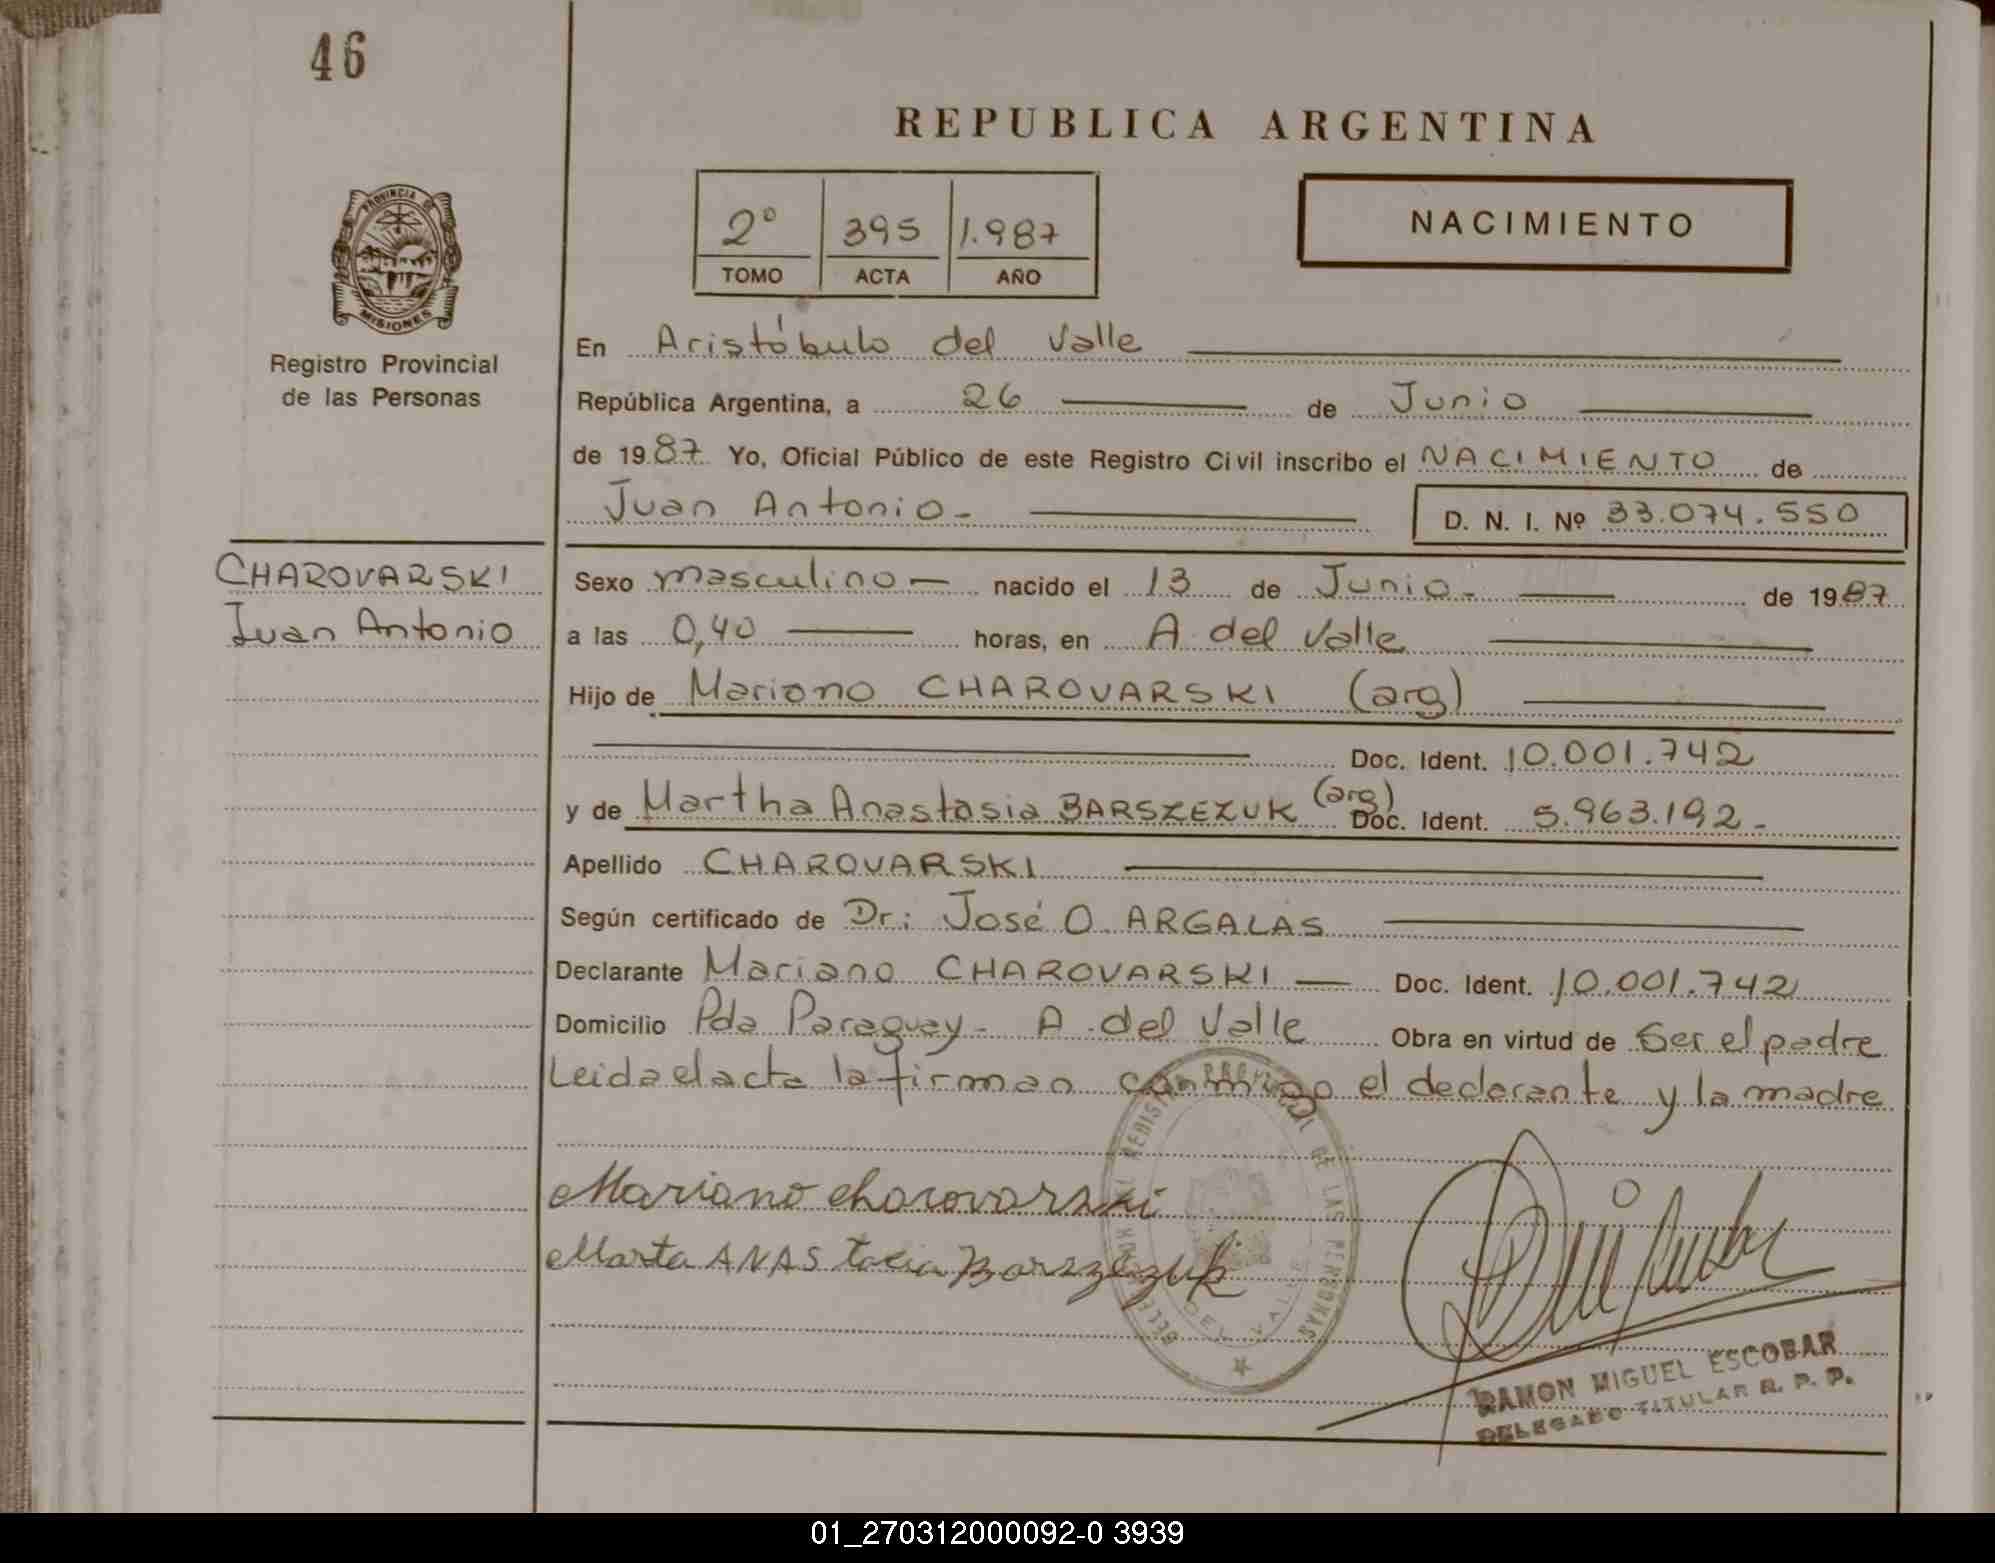 46
REPUBLICA ARGENTINA
2º 395 1.987
TOMO ACTA AÑO
NACIMIENTO
PROVINCIA DE
MISIONES
Registro Provincial
de las Personas
En Aristóbulo del Valle
República Argentina, a 26 de Junio
de 1987 Yo, Oficial Público de este Registro Civil inscribo el NACIMIENTO de
Juan Antonio - D. N. I. Nº 33.074.550
CHAROVARSKI
Juan Antonio
Sexo masculino — nacido el 13 de Junio - de 1987
a las 0,40 horas, en A. del Valle
Hijo de Mariano CHAROVARSKI (arg)
Doc. Ident. 10.001.742
y de Martha Anastasia BARSZEZUK (arg) Doc. Ident. 5.963.192 -
Apellido CHAROVARSKI
Según certificado de Dr: José O. ARGALAS
Declarante Mariano CHAROVARSKI — Doc. Ident. 10.001.742
Domicilio Pda Paraguay - A. del Valle Obra en virtud de Ser el padre
Leida el acta la firman conmigo el declarante y la madre
Mariano Charovarski
Marta ANAStacia Barszezuk
REGISTRO PROVINCIAL DE LAS PERSONAS
DEL VALLE
RAMON MIGUEL ESCOBAR
DELEGADO TITULAR R. P. P.
01_270312000092-0 3939